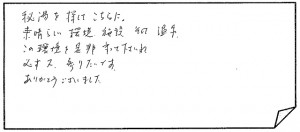 秘湯を探してこちらに。
素晴らしい環境 施設 その
この環境を是非 守って下さいね
必ず又、参りたいです。
ありがとうございました